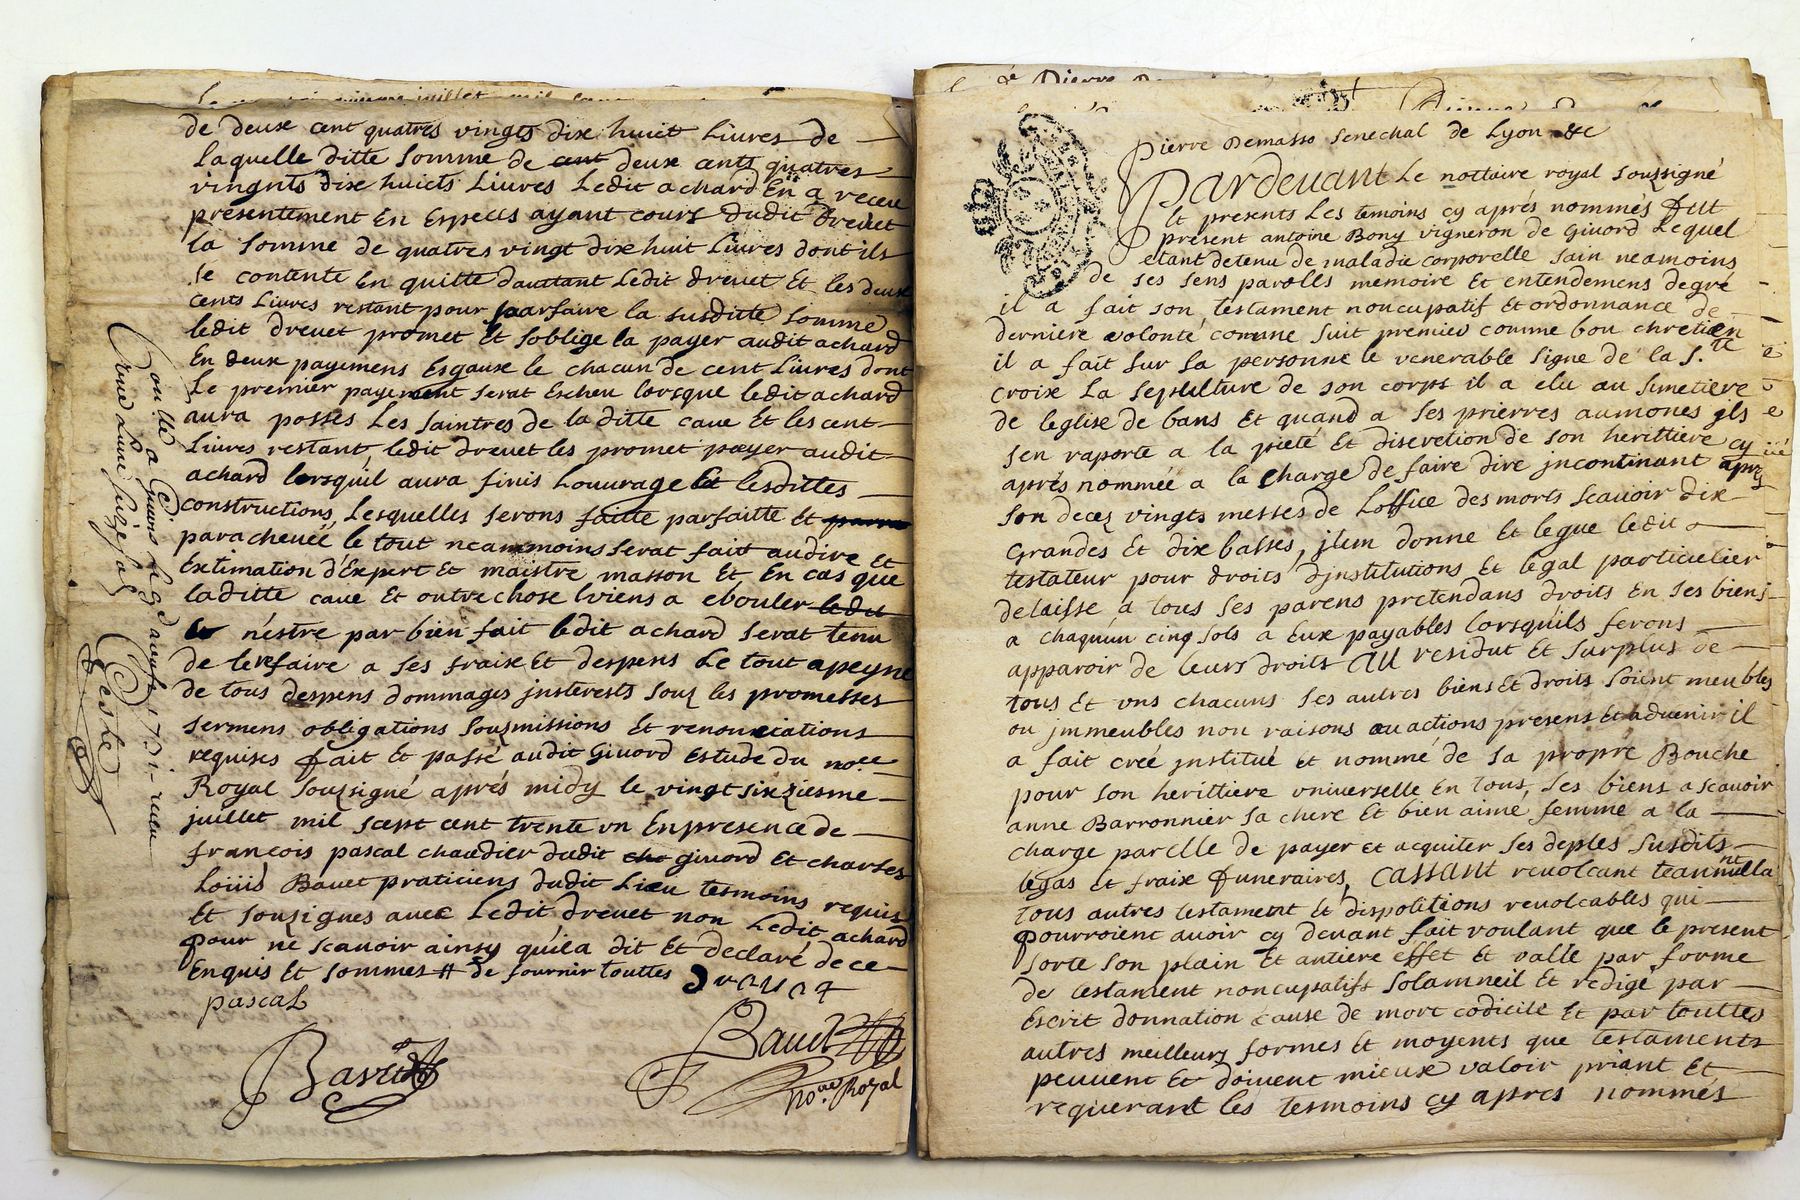 de deux cent quatres vingts dix huict Livres de
Laquelle ditte Somme de cent deux cents quatres
vingnts dix huicts Livres Ledit achard En a receu
presentement En Especes ayant cours dudit Drevet
la Somme de quatres vingt dix huit Livres dont ils
se contente En quitte dautant Ledit drevet Et les deux
cents Livres restant pour parfaire la susditte Somme
ledit drevet promet Et soblige la payer audit achard
En deux payemens Esgaux le chacun de cent Livres dont
Le premier payement serat Escheu lorsque ledit achard
aura posses Les saintres de la ditte cave Et les cent
Livres restant, ledit drevet les promet payer audit
achard lorsquil aura finis Louvrage Et lesdittes
constructions, Lesquelles serons faitte parfaitte Et
parachevée le tout neammoins serat fait audire et
Extimation d'Expert Et maistre masson Et En cas que
laditte cave Et outre chose viens a ebouler ledit
n'estre par bien fait ledit achard serat tenu
de le refaire a ses fraix Et despens Le tout apeyne
de tous despens dommages justerests sous les promesses
sermens obligations sousmissions Et renonciations
requises fait Et passé audit Givord estude du no.re
Royal Sousigné aprés midy le vingt sixziesme
juillet mil scept cent trente un En presence de
françois pascal chaudier dudit che givord Et charles
Loüis Bavet praticiens dudit Lieu tesmoins requis
Et sousignes avec Ledit drevet non Ledit achard
pour ne scavoir ainsy qu'il a dit Et declaré de ce
Enquis Et sommes # de fournir touttes
pascal
Bavet
Bavet
no.re Royal
a Givors le 9 d aoust 1731 receu
Pierre Demasso Senechal de Lyon &c
Pardevant Le nottaire royal Sousigné
Et presents Les temoins cy aprés nommés fut
present antoine Bony vigneron de Givord Lequel
etant detenu de maladie corporelle sain neamoins
de ses sens parolles memoire Et entendemens de gré
il a fait son testament noncupatif Et ordonnance de
derniere volonté comme suit premier comme bon chretien
il a fait sur sa personne le venerable signe de la S.te
croix La sepulture de son corps il a elu au simetiere
de leglise de bans Et quand a ses prierres aumones jls
s'en raporte a la pieté Et discretion de son herittiere cy
aprés nommée a la charge de faire dire jncontinant aprés
son decez vingts messes de Loffice des morts scavoir dix
Grandes Et dix basses, jtem donne Et legue ledit
testateur pour droits d'jnstitutions Et legal particulier
delaisse a tous ses parens pretendans droits En ses biens
a chaqu'un cinq sols a Eux payables lorsqu'ils ferons
apparoir de leurs droits au residut Et surplus de
tous Et uns chacuns ses autres biens Et droits soient meubles
ou jmmeubles non raisons ou actions presens Et advenir il
a fait créé jnstitué Et nommé de sa propre Bouche
pour son herittiere universelle En tous, ses biens a scavoir
anne Barronnier sa chere Et bien aime femme a la
charge par Elle de payer Et acquiter ses deptes susdits
legas Et fraix funeraires, cassant revolcant Et annullant
tous autres testament Et dispotitions revolcables qui
pourroient avoir cy devant fait voulant que le present
sorte son plain Et antiere effet Et valle par forme
de testament noncupatifs solamneil Et redigé par
Escrit donnation cause de mort codicile Et par touttes
autres meilleurs formes Et moyents que testaments
peuvent Et doivent mieux valoir priant Et
requerant les tesmoins cy apres nommés